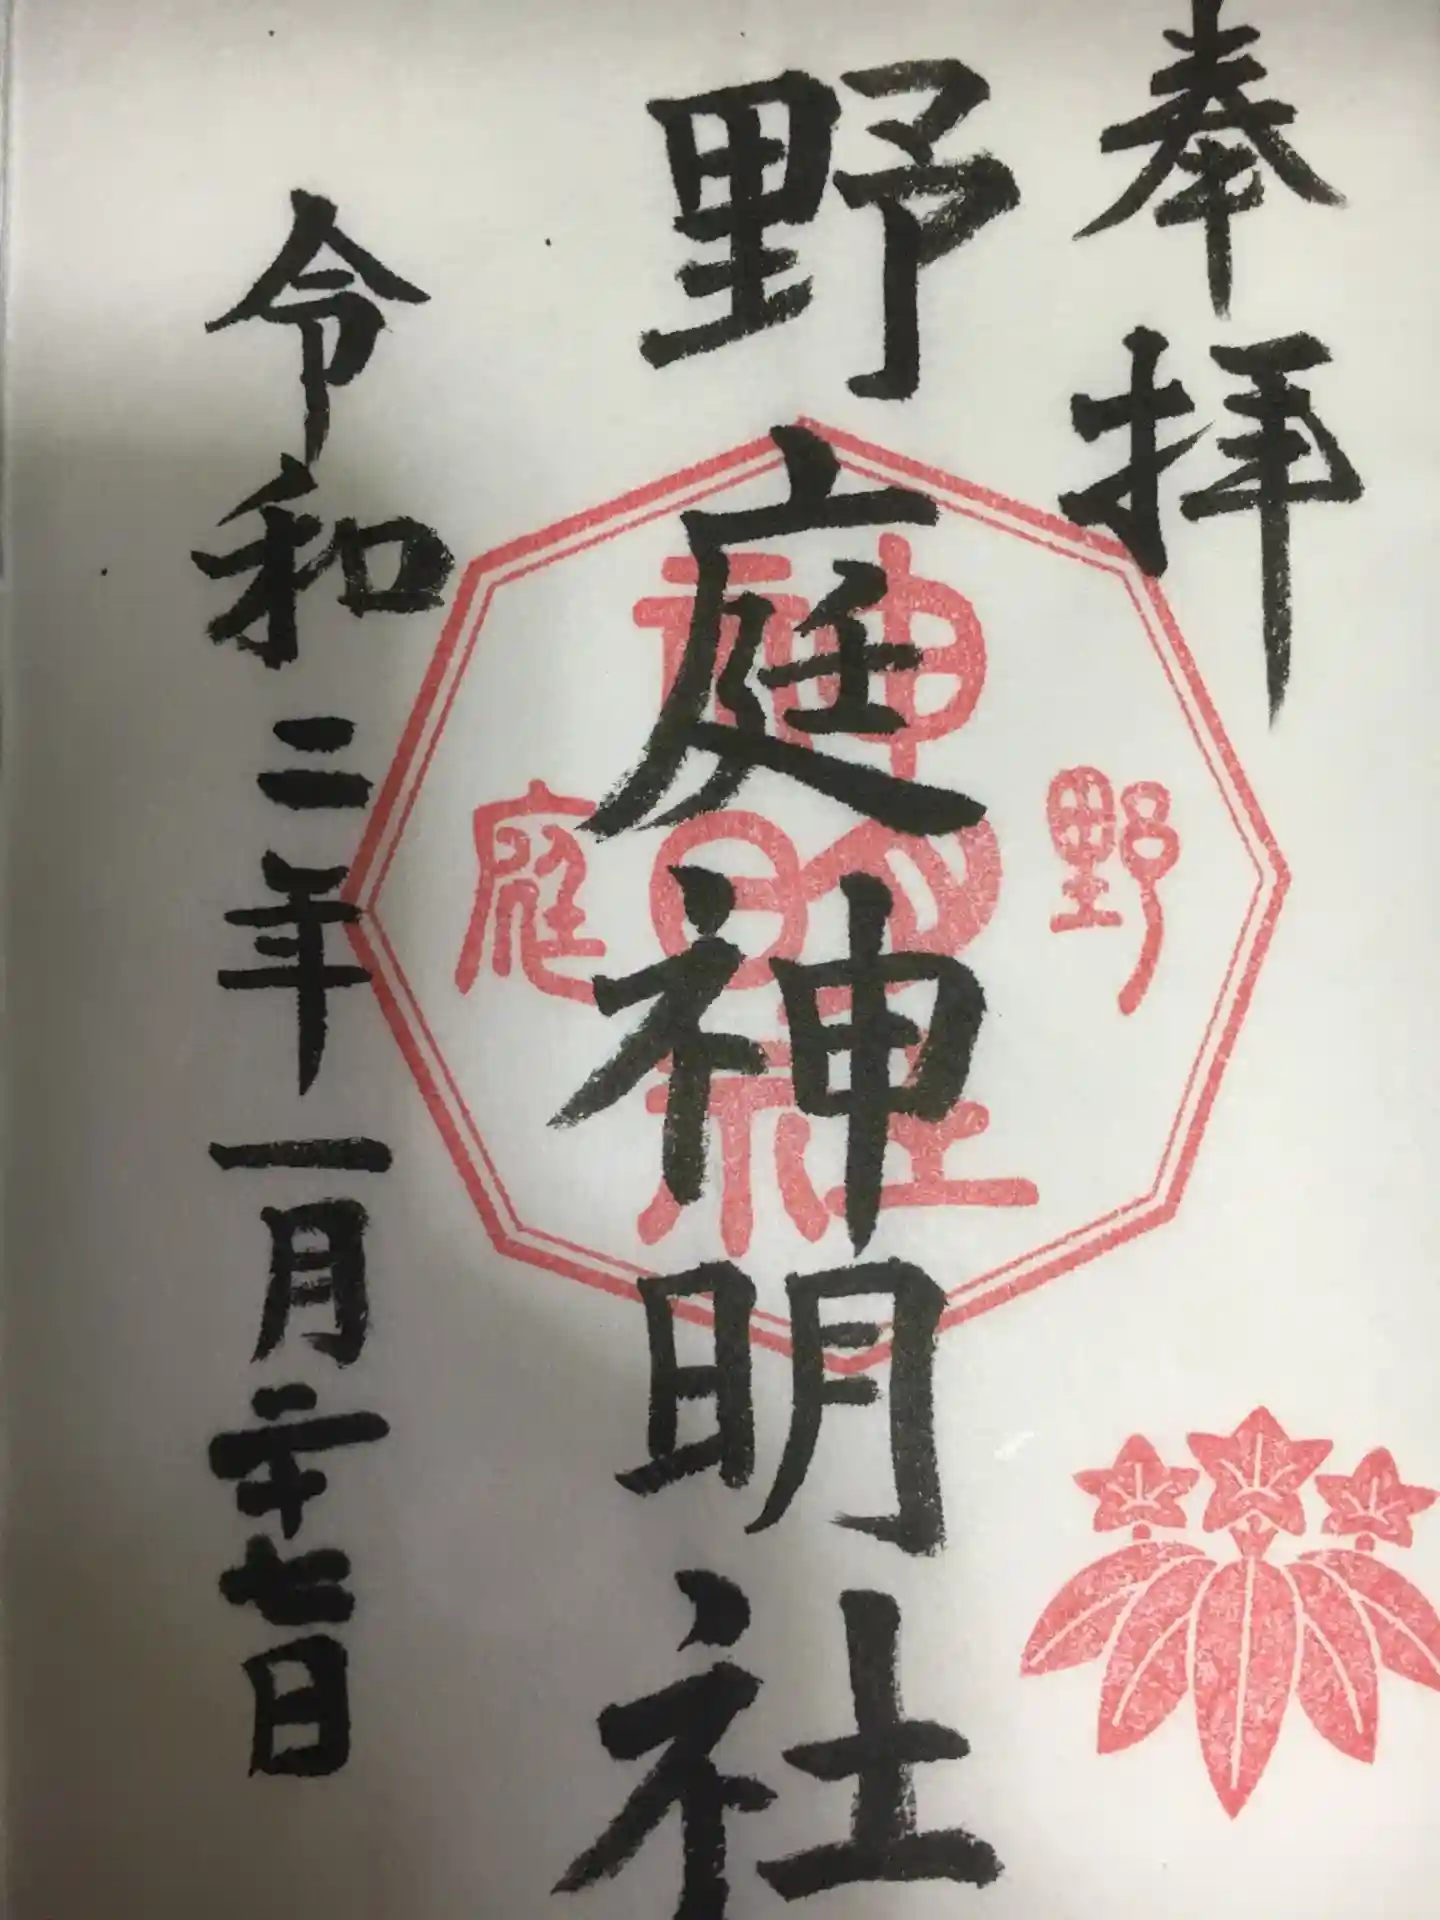 奉拝
野庭神明社
令和二年一月二十七日
野
神明社
庭